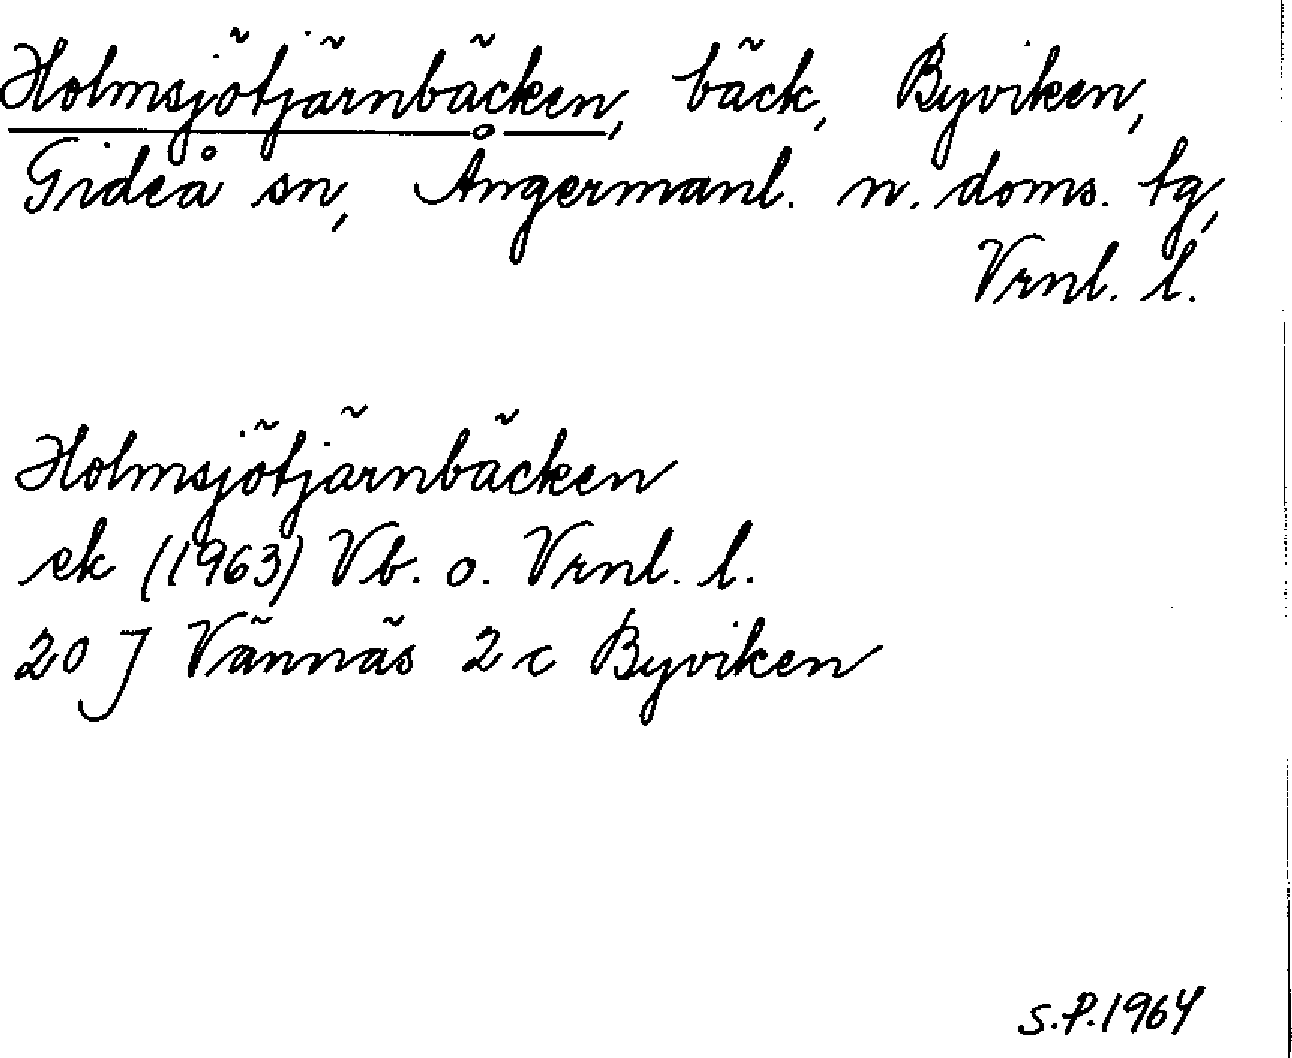 Holmsjötjärnbäcken, bäck, Byviken,
Gideå sn, Ångermanl. n. doms. tg,
Vrnl. l.
Holmsjötjärnbäcken
ek (1963) Vb. o. Vrnl. l.
20 J Vännäs 2 c Byviken
S.P. 1964